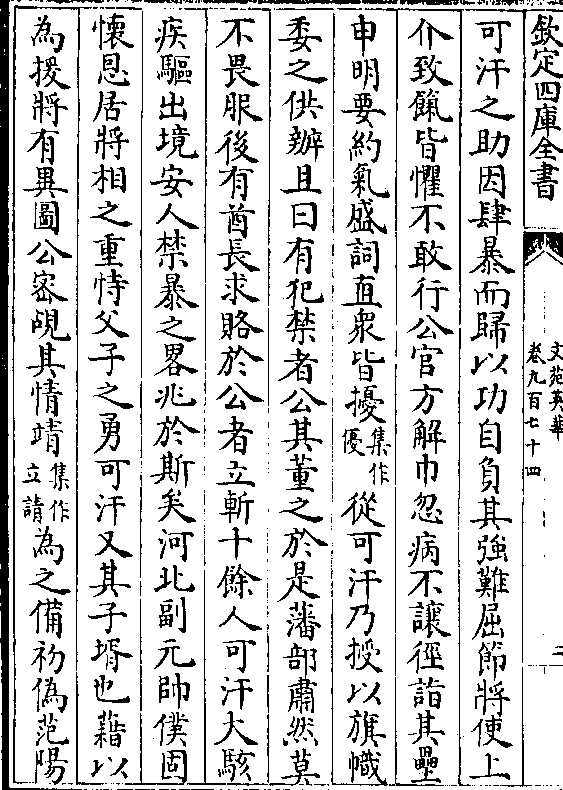 欽定四庫全書
文苑英華
卷九百七十四
二
可汗之助因肆暴而歸以功自負其強難屈節將使上
介致餼皆懼不敢行公官方解巾忽病不讓徑詣其壘
申明要約氣盛詞直衆皆擾集作優從可汗乃授以旗幟
委之供辦且曰有犯禁者公其董之於是藩部肅然莫
不畏服後有酋長求賂於公者立斬十餘人可汗大駭
疾驅出境安人禁暴之畧兆於斯矣河北副元帥僕固
懷恩居將相之重恃父子之勇可汗又其子壻也藉以
為援將有異圖公密覘其情靖集作立請為之備初偽范陽